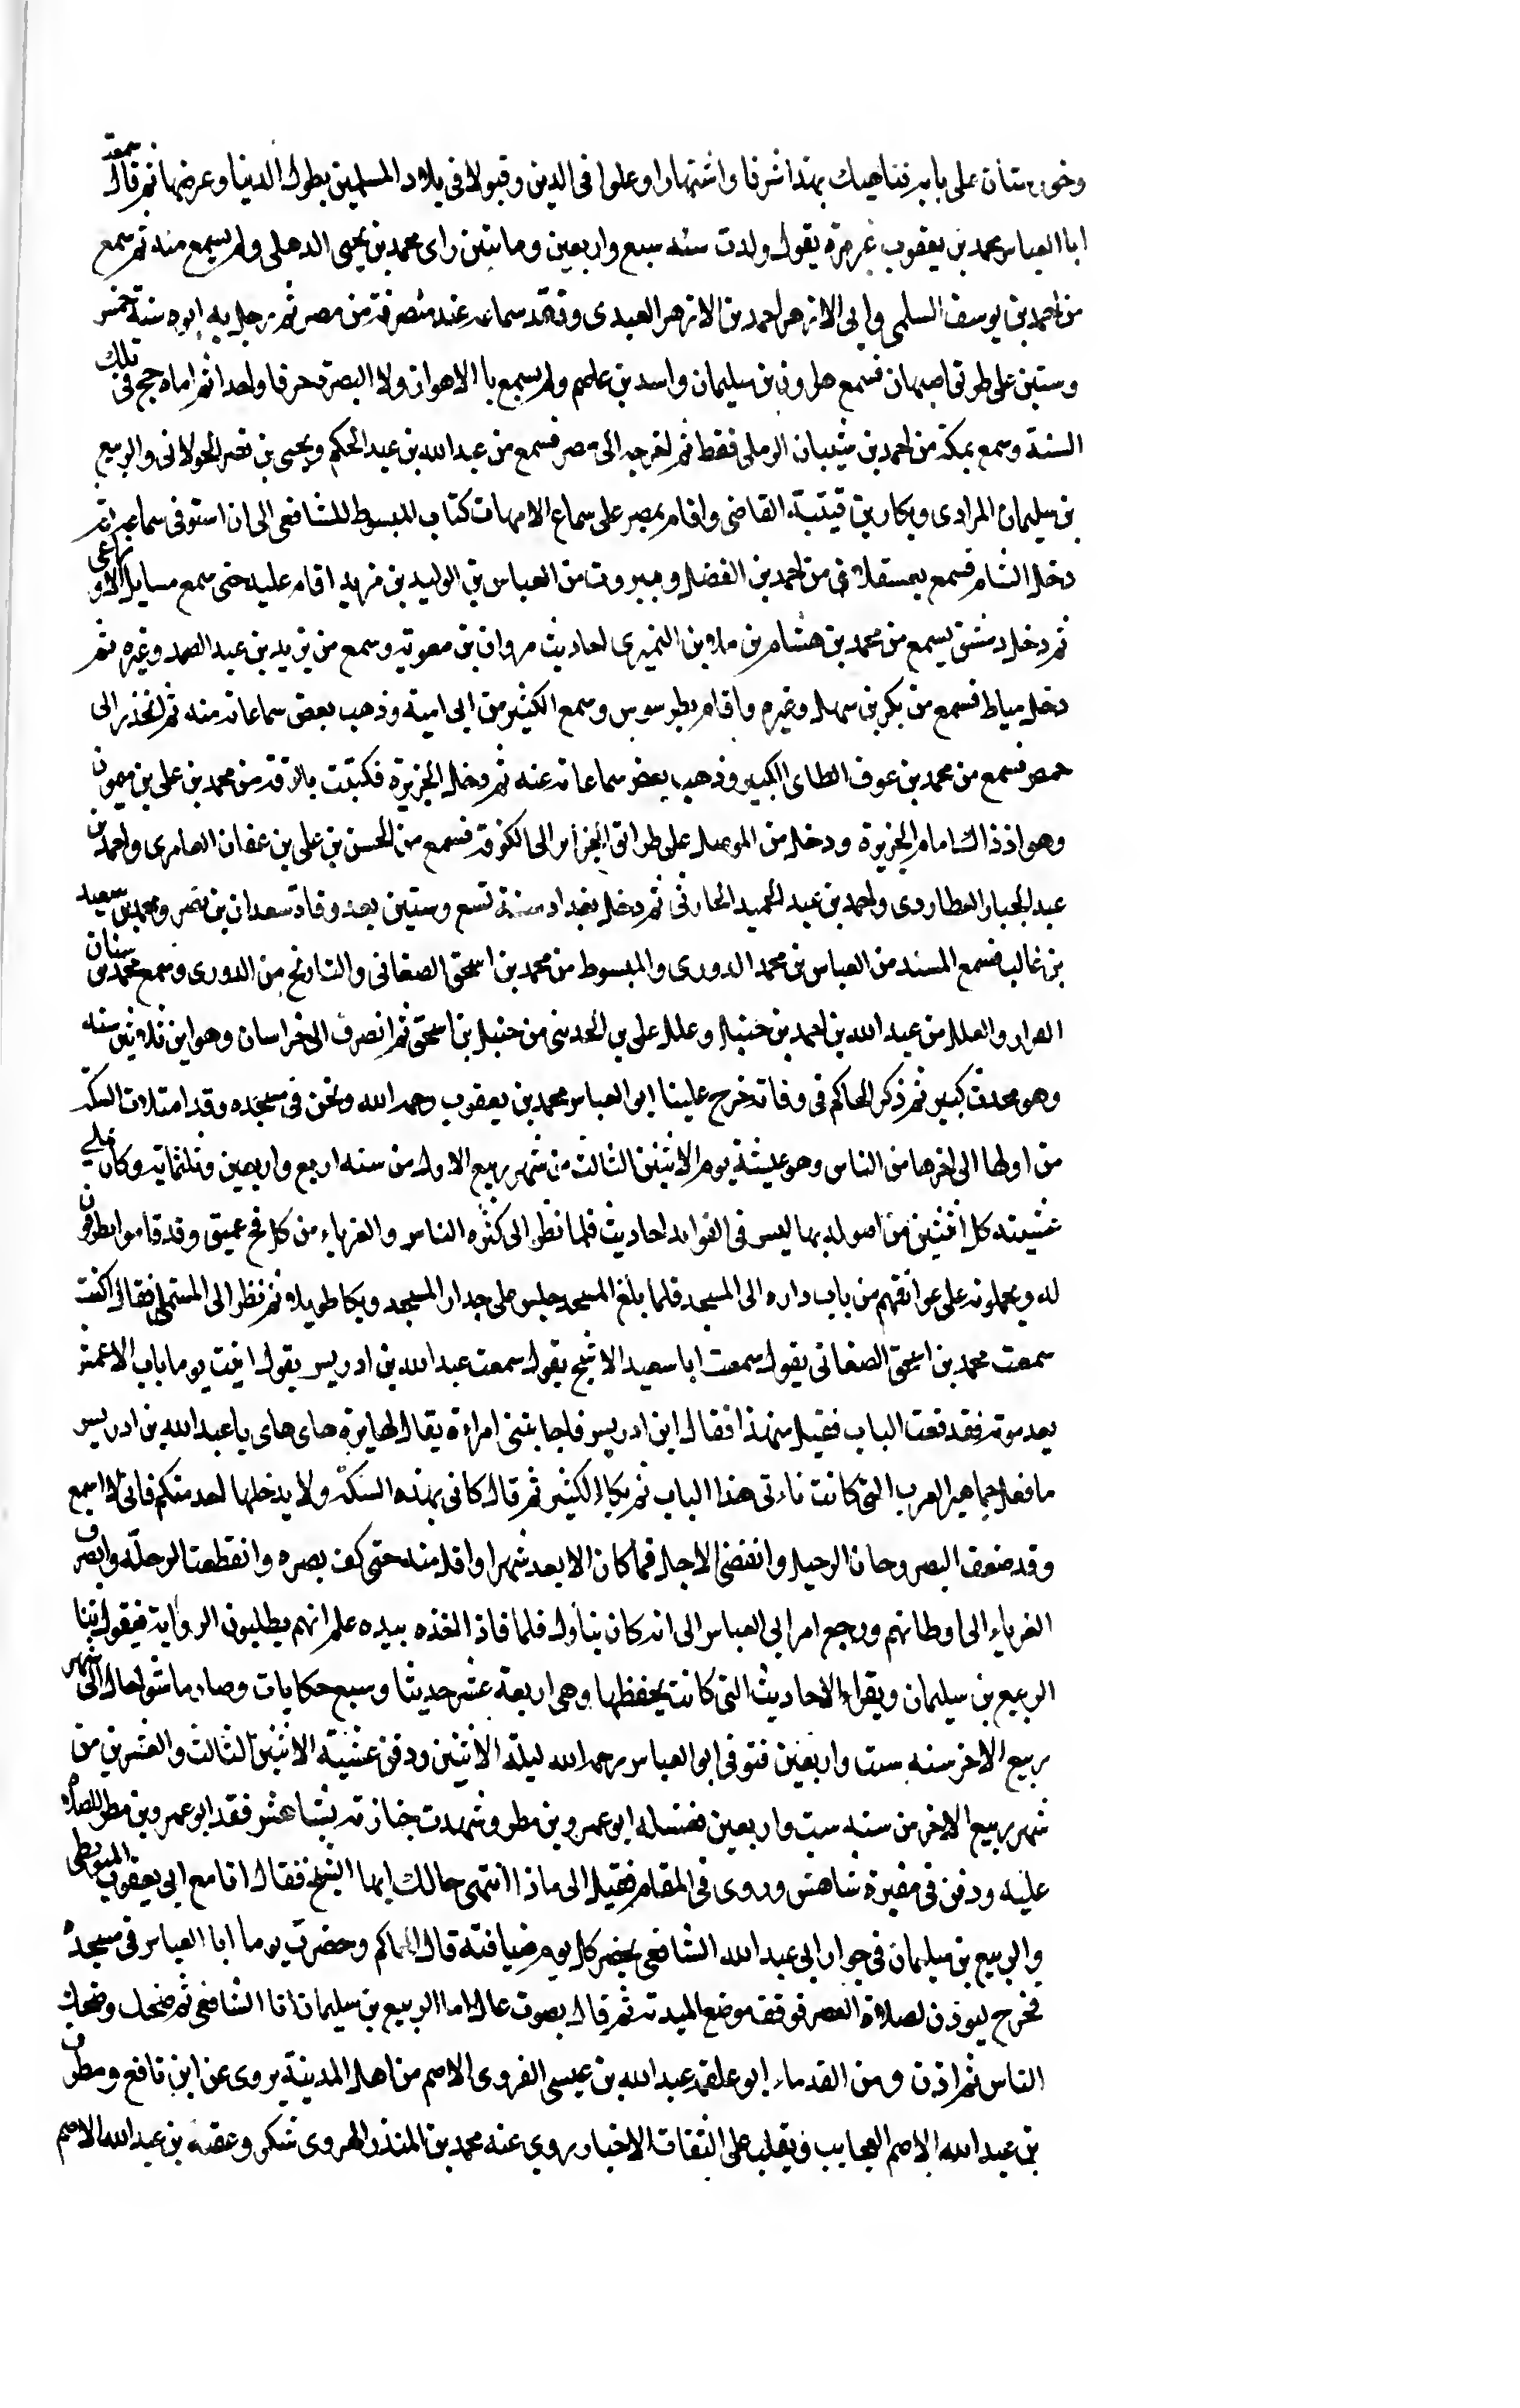 وخوزستان على بابه فناهيك بهذا شرفا واشتهارا وعلوا في الدين وقبولا في بلاد المسلمين بطول الدنيا وعرضها ثم قال سمعت
ابا العباس محمد بن يعقوب غير مرة يقول ولدت سنه سبع واربعين ومايتين راى محمد بن يحيى الدهلى ولم يسمع منه ثم سمع
من احمد بن يوسف السلمى وابى الازهر احمد بن الازهر العبدى وفقد سماعه عند منصرفه من مصر ثم رحل به ابوه سنة خمس
وستين على طريق اصبهان فسمع هارون بن سليمان واسد بن عاصم ولم يسمع بالاهواز ولا البصرة حرفا واحدا ثم اماه حج فى تلك
السنة وسمع بمكة من احمد بن شيبان الرملى فقط ثم اخرجه الى مصر فسمع من عبد الله بن عبد الحكم ويحيى بن نصر الخولانى والربيع
بن سليمان المرادى وبكار بن قتيبة القاضى واقام بمصر على سماع الامهات كتاب المبسوط للشافعى الى ان استوفى سماعه ثم
دخل الشام فسمع بعسقلان من احمد بن الفضل وببيروت من العباس بن الوليد بن مزيد اقام عليه حتى سمع مسايل الاوزاعى
ثم دخل دمشق يسمع من محمد بن هشام بن ملاس النميرى احاديث مروان بن معوية وسمع من يزيد بن عبد الصمد وغيره ثم
دخل دمياط فسمع من بكر بن سهل وغيره واقام بطرسوس وسمع الكثير من ابى امية وذهب بعض سماعاته منه ثم انحدر الى
حمص فسمع من محمد بن عوف الطاى الكبير وذهب بعض سماعاته عنه ثم دخل الجزيرة فكتبت بالرقة من محمد بن على بن ميمون
وهو اذ ذاك امام الجزيرة ودخل من الموصل على طرائق الجزائر الى الكوفة فسمع من الحسن بن على بن عفان العامرى واحمد بن
عبد الجبار العطاردى واحمد بن عبد الحميد الحارثى ثم دخل بغداد سنة تسع وستين بعد وفاة سعدان بن نصر ومحمد بن سعيد
بن غالب فسمع المسند من العباس بن محمد الدورى والمبسوط من محمد بن اسحق الصغانى والتاريخ من الدورى وسمع محمد بن سنان
القزاز والعلل من عبد الله بن احمد بن حنبل وعلل على بن المدينى من حنبل بن اسحق ثم انصرف الى خراسان وهو ابن ثلاثين سنه
وهو محدث كبير ثم ذكر الحاكم فى وفاته خرج علينا ابو العباس محمد بن يعقوب رحمه الله ونحن فى مسجده وقد امتلات السكة
من اولها الى اخرها من الناس وهو عيشة يوم الاثنين الثالث من شهر ربيع الاول من سنه اربع واربعين وثلثماية وكان يملى
عشيته كل اثنين من اصوله بما ليس فى الفوايد احاديث فلما نظر الى كثره الناس والغرباء من كل فج عميق وقد قاموا يطرقون
له ويحملونه على عواتقهم من باب داره الى المسجد فلما بلغ المسجد جلس على جدار المسجد وبكا طويلا ثم نظر الى المستملى فقال اكتب
سمعت محمد بن اسحق الصغانى يقول سمعت ابا سعيد الاشج يقول سمعت عبد الله بن ادريس يقول اتيت يوما باب الاعمش
بعد موته فقد قعت الباب فقيل من هذا فقال ابن ادريس فاجابتنى امراءة يقال لها برة هاى هاى يا عبد الله بن ادريس
ما فعل جماهير العرب التى كانت تاءتى هذا الباب ثم بكا الكثير ثم قال كانى بهذه السكة ولا يدخلها احد منكم فانى لا اسمع
وقد ضعف البصر وحان الرحيل وانقضى الاجل فما كان الا بعد شهر او اقل منه حتى كف بصره وانقطعت الرحلة وانصرف
الغرباء الى اوطانهم ورجع امر ابى العباس الى انه كان يناول قلما فاذا اخذه بيده علم انهم يطلبون الرواية فيقول ثنا
الربيع بن سليمان ويقراء الاحاديث التى كانت يحفظها وهى اربعة عشر حديثا وسبع حكايات وصار ما شو احال الى شهر
ربيع الاخر سنه ست واربعين فتوفى ابو العباس رحمه الله ليلة الاثنين ودفن عشية الاثنين الثالث والعشرين من
شهر ربيع الاخر من سنه ست واربعين فغسله ابو عمرو بن مطر وشهدت جنازته بشاهشر فقد ابو عمرو بن مطر للصلاة
عليه ودفن فى مقبرة شاهشر وروى فى المقام فقيل الى ماذا انتهى حالك ايها الشيخ فقال انا مع ابى يعقوب البويطى
والربيع بن سليمان فى جوار ابى عبد الله الشافعى نحضر كل يوم ضيافته قال الحاكم وحضرت يوما ابا العباس فى مسجده
فخرج ليوذن لصلاة العصر فوقف موضع الميدنه ثم قال بصوت عال اما الربيع بن سليمان انا الشافعى ثم ضحك وضحك
الناس ثم اذن ومن القدماء ابو علقمة عبد الله بن عيسى الفروى الاصم من اهل المدينة يروى عن ابن نافع ومطرف
بن عبد الله الاصم العجايب ويقلب على الثقات الاخبار يروى عنه محمد بن المنذر الهروى شكر وعقبة بن عبد الله الاصم